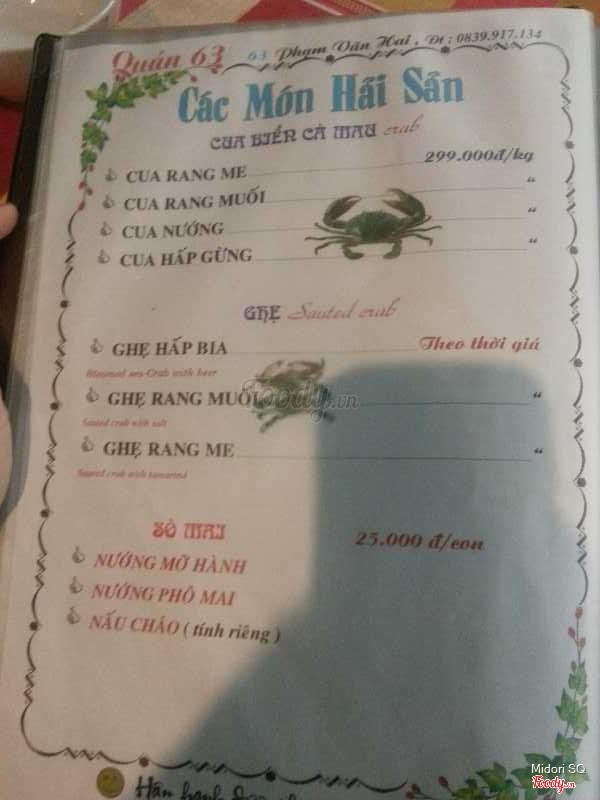 Quán 63 63 Phạm Văn Hai , Đt : 0839.917.134
Các Món Hải Sản
CUA BIỂN CÀ MAU crab
CUA RANG ME 299.000đ/kg
CUA RANG MUỐI "
CUA NƯỚNG "
CUA HẤP GỪNG "
GHẸ Sauted crab
GHẸ HẤP BIA Theo thời giá
Steamed sea-Crab with beer
GHẸ RANG MUỐI "
Sauted crab with salt
GHẸ RANG ME "
Sauted crab with tamarind
foody.vn
SÒ MAI 25.000 đ/con
NƯỚNG MỠ HÀNH
NƯỚNG PHÔ MAI
NẤU CHÁO ( tính riêng )
Hân hạnh
Midori SQ
Foody.vn